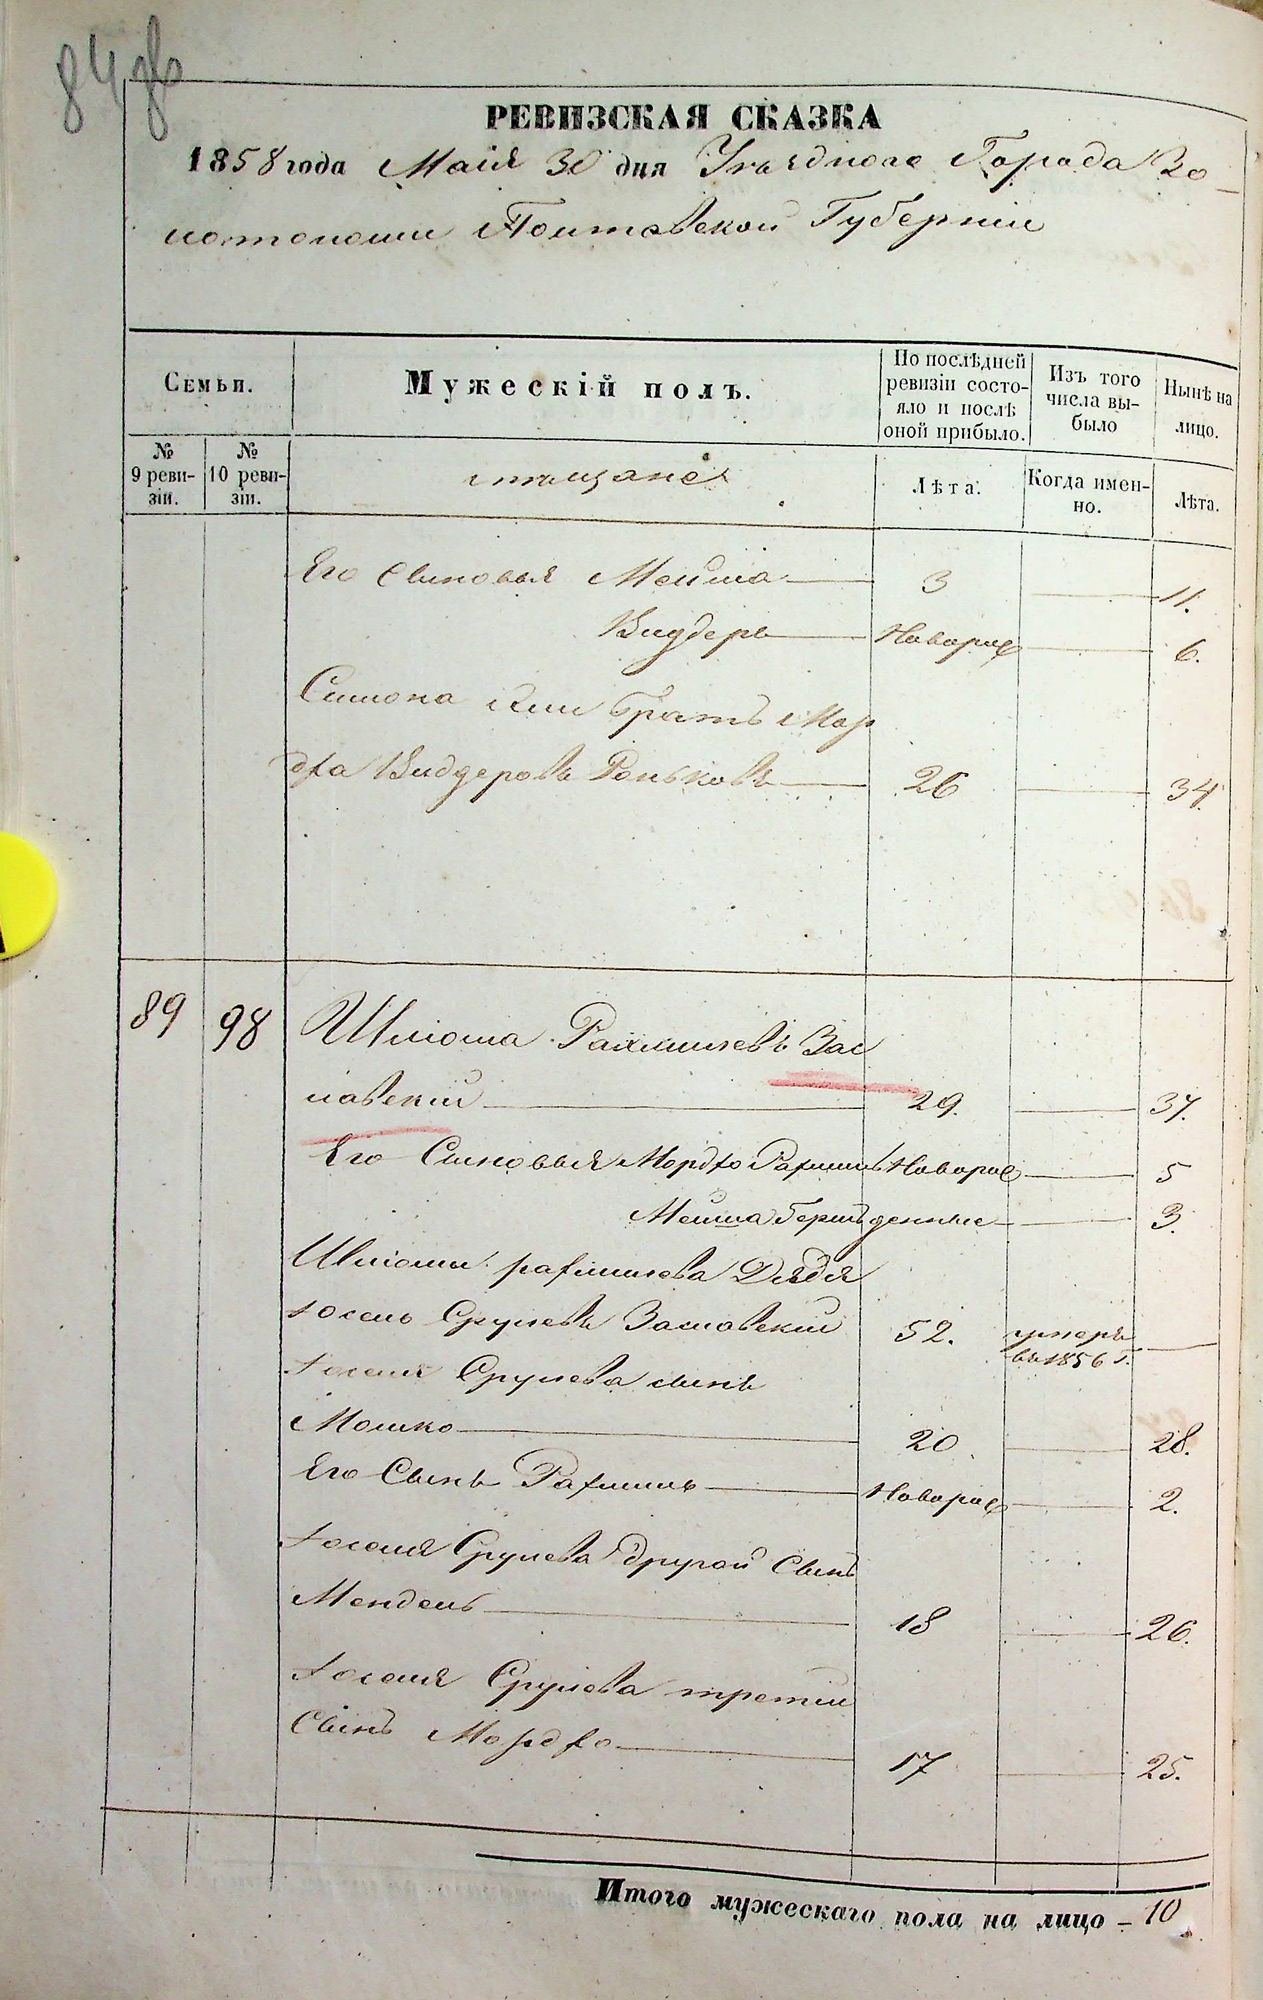 84 об
РЕВИЗСКАЯ СКАЗКА
1858 года Маія 30 дня Уѣзднаго Города Зо-
лотоноши Полтавской Губерніи
Семьи.
Мужескій полъ.
По послѣдней ревизіи состояло и послѣ оной прибыло.
Изъ того числа выбыло
Нынѣ на лицо.
№ 9 ревизіи.
№ 10 ревизіи.
мѣщане
Лѣта.
Когда именно.
Лѣта.
Его Сыновья Мейша 3 11.
Виддеръ Новорож 6.
Симона Братъ Мор
дха Виддеровъ Роньковъ 26 34
89 98 Шліома Рахмилевъ Зас
лавскій 29. 37.
Его Сыновья Мордхо Рахмиль Новорож 5
Мейша Беръ денные 3.
Шліомы рахмилева Дядя
Іосель Срулевъ Заславскій 52. умеръ
въ 1856 г.
Іоселя Срулева сынъ
Мошко 20 28.
Его Сынъ Рахмиль Новорож 2.
Іоселя Срулева другой Сынъ
Мендель 18 26.
Іоселя Срулева третій
Сынъ Мордхо 17 25.
Итого мужескаго пола на лицо – 10